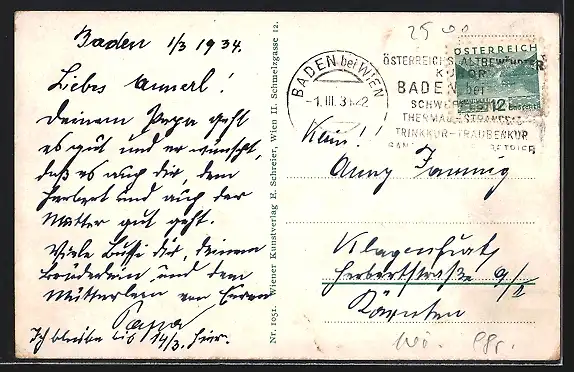 Baden 1/3 1934.
Liebes Annerl!
Deinem Papa geht
es gut und er wünscht,
daß es auch dir, dem
Herbert und auch der
Mutter gut geht.
Viele Bussi dir, deinem
Brüderlein und dem
Mütterlein von Eurem
Papa
Ich bleibe bis 14/3. hier.
Nr. 1051. Wiener Kunstverlag E. Schreier, Wien II. Schmelzgasse 12.
25
BADEN bei WIEN
-1.III.34
ÖSTERREICHS ALTBEWÄHRTER
KURORT
BADEN bei
THERMAL-STRANDBAD
TRINKKUR-TRAUBENKUR
ÖSTERREICH
12
Anny
Klagenfurt
Herbertstraße 9/I
Kärnten